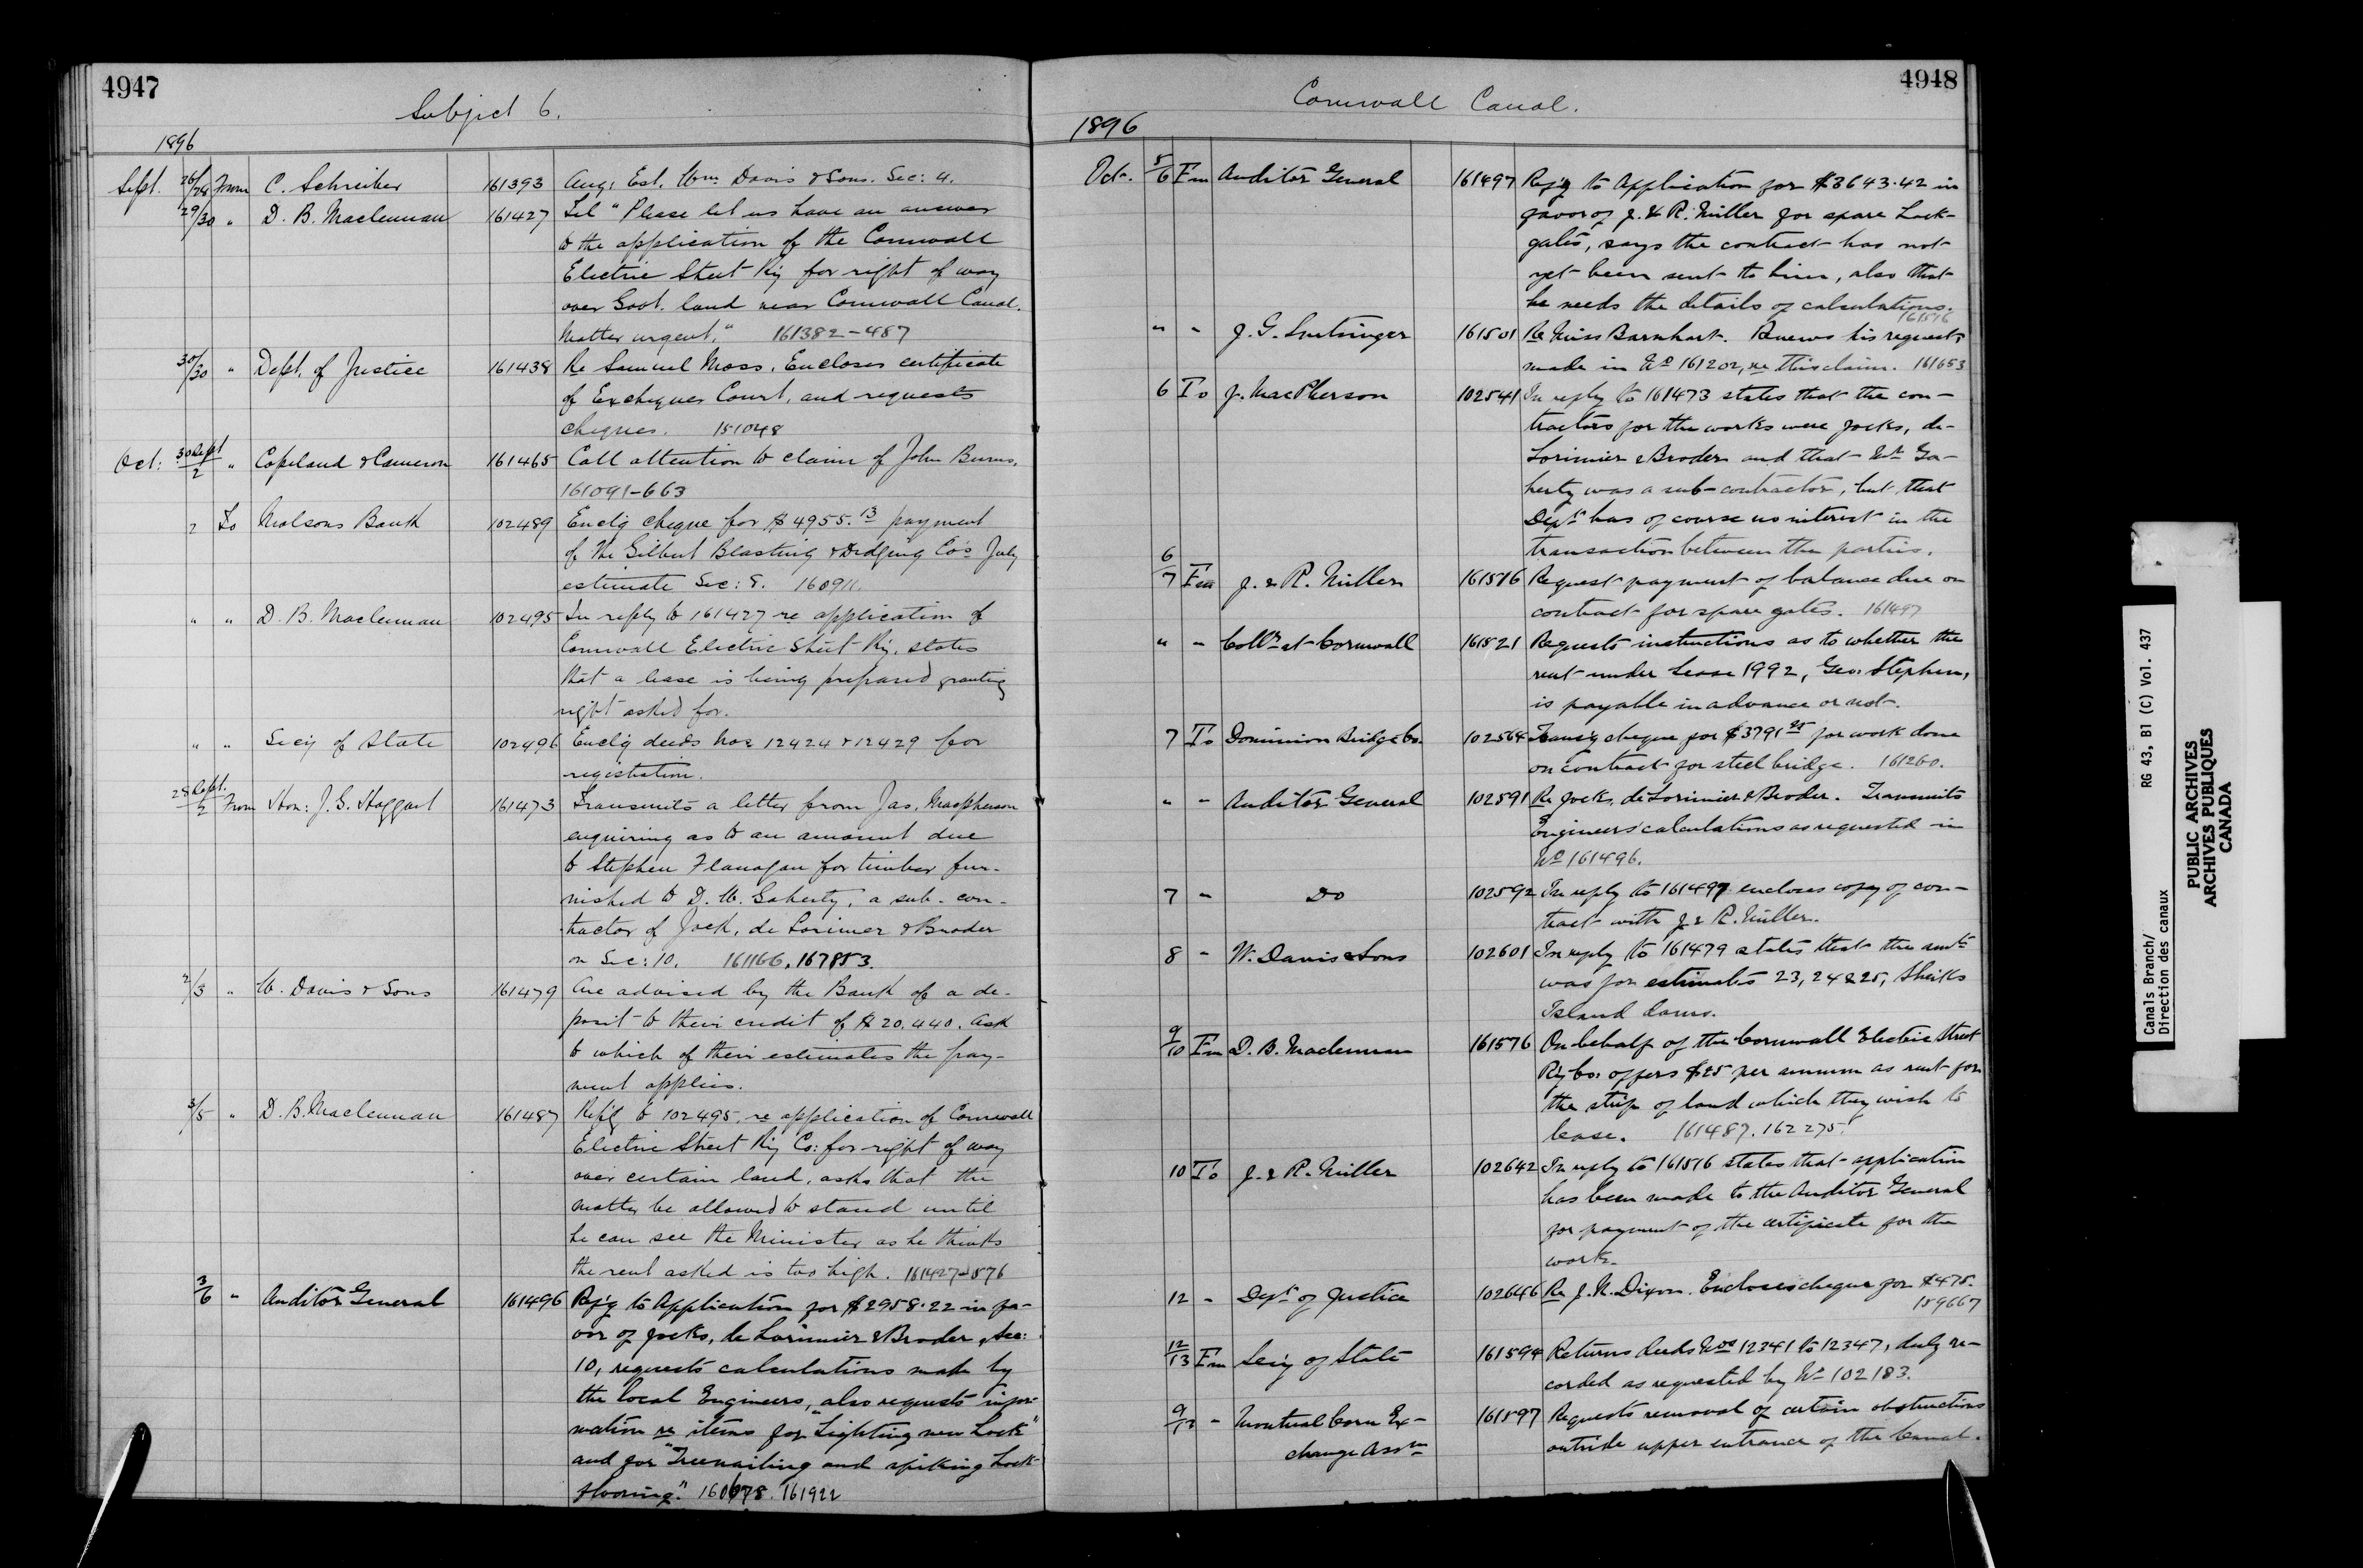 4947
Subject 6.
1896
Sept. 26/28 From C. Schreiber 161393 Aug: Est. Wm. Davis & Sons. Sec: 4.
29/30 " D. B. Maclennan 161427 Tel "Please let us have an answer
to the application of the Cornwall
Electric Street Ry for right of way
over Govt. land near Cornwall Canal.
Matter urgent." 161382-487
30/30 " Dept. of Justice 161438 Re Samuel Moss. Encloses certificate
of Exchequer Court, and requests
cheques. 151048
Oct: 30 Sept/2 " Copeland & Cameron 161465 Call attention to claim of John Burns.
161091-663
2 To Molsons Bank 102489 Encl'g cheque for $4955.13 payment
of the Gilbert Blasting & Dredging Co's July
estimate Sec: 8. 160911.
" " D. B. Maclennan 102495 In reply to 161427 re application of
Cornwall Electric Street Ry. states
that a lease is being prepared granting
right asked for.
" " Sec'y of State 102496 Encl'g deeds Nos 12424 & 12429 for
registration.
28 Sept./2 From Hon: J. G. Haggart 161473 Transmits a letter from Jas. Macpherson
enquiring as to an amount due
to Stephen Flanagan for timber fur-
nished to D. W. Gaherty, a sub-con-
tractor of Jock, de Lorimer & Broder
on Sec: 10. 161166, 167853.
2/3 " W. Davis & Sons 161479 Are advised by the Bank of a de-
posit to their credit of $20.440. Ask
to which of their estimates the pay-
ment applies.
3/5 " D. B. Maclennan 161487 Ref'g to 102495, re application of Cornwall
Electric Street Ry Co: for right of way
over certain land, asks that the
matter be allowed to stand until
he can see the Minister as he thinks
the rent asked is too high. 161427-576
3/6 " Auditor General 161496 Ref'g to Application for $2958.22 in fa-
vor of Jocks, de Lorimier & Broder, Sec:
10, requests calculations made by
the local Engineers, also requests infor-
mation re items for "Lighting new Lock"
and for "Treenailing and spiking Lock
flooring." 160678. 161922
4948
Cornwall Canal.
1896
Oct. 5/6 Fm Auditor General 161497 Ref'g to Application for $3643.42 in
favor of J. & R. Miller for spare Lock-
gates, says the contract has not
yet been sent to him, also that
he needs the details of calculations.
161516
" - J. G. Snetsinger 161501 Re Miss Barnhart. Renews his request,
made in No 161202, re this claim. 161653
6 To J. MacPherson 102541 In reply to 161473 states that the con-
tractors for the works were Jocks, de-
Lorimier & Broder and that Mr Ga-
herty was a sub-contractor, but that
Dept has of course no interest in the
transaction between the parties.
6/7 Fm J. & R. Miller 161516 Request payment of balance due on
contract for spare gates. 161497
" - Collr at Cornwall 161521 Requests instructions as to whether the
rent under Lease 1992, Geo. Stephen,
is payable in advance or not.
7 To Dominion Bridge Co. 102564 Trans'g cheque for $3791.25 for work done
on contract for steel bridge. 161260.
" - Auditor General 102591 Re Jocks, de Lorimier & Broder. Transmits
Engineers' calculations as requested in
No 161496.
7 - Do 102592 In reply to 161497 encloses copy of con-
tract with J. & R. Miller.
8 - W. Davis & Sons 102601 In reply to 161479 states that the amt
was for estimates 23, 24 & 25, Sheiks
Island dams.
9/10 Fm D. B. Maclennan 161576 On behalf of the Cornwall Electric Street
Ry Co: offers $25 per annum as rent for
the strip of land which they wish to
lease. 161487. 162275.
10 To J. & R. Miller 102642 In reply to 161516 states that application
has been made to the Auditor General
for payment of the certificate for the
work.
12 - Dept of Justice 102646 Re J. N. Dixon. Encloses cheque for $475.
159667
12/13 Fm Sec'y of State 161594 Returns deeds Nos 12341 to 12347, duly re-
corded as requested by No 102183.
9/13 - Montreal Corn Ex- 161597 Requests removal of certain obstructions
change Assn outside upper entrance of the Canal.
Canals Branch/
Direction des canaux
RG 43, B1 (C) Vol. 437
PUBLIC ARCHIVES
ARCHIVES PUBLIQUES
CANADA